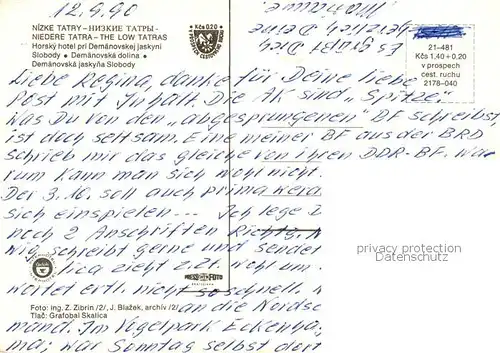 12.9.90
NÍZKE TATRY - НИЗКИЕ ТАТРЫ -
NIEDERE TATRA - THE LOW TATRAS
Horský hotel pri Demänovskej jaskyni
Slobody • Demänovská dolina •
Demänovská jaskyňa Slobody
Kčs 0,20
21-481
Kčs 1,40 + 0,20
v prospech
cest. ruchu
2178-040
Es grüßt Dich
Liebe Regina, danke für Deine liebe
Post mit Inhalt. Die AK sind „Spitze".
Was Du von den „abgesprungenen" BF schreibst,
ist doch seltsam. Eine meiner BF aus der BRD
schrieb mir das gleiche von ihren DDR-BF. Wa-
rum kann man sich wohl nicht
Der 3.10. soll auch prima
sich einspielen... Ich lege
noch 2 Anschriften
schreibt gerne und sendet
zieht z.Zt. wohl um.
wartet ertl. nicht so schnell.
an die Nordse
mand. Im Vogelpark Eckenha
ma; war Sonntag selbst dort
privacy protection
Datenschutz
PRESSFOTO
BRATISLAVA
Foto: ing. Z. Zibrín /2/, J. Blažek, archív /2/
Tlač: Grafobal Skalica